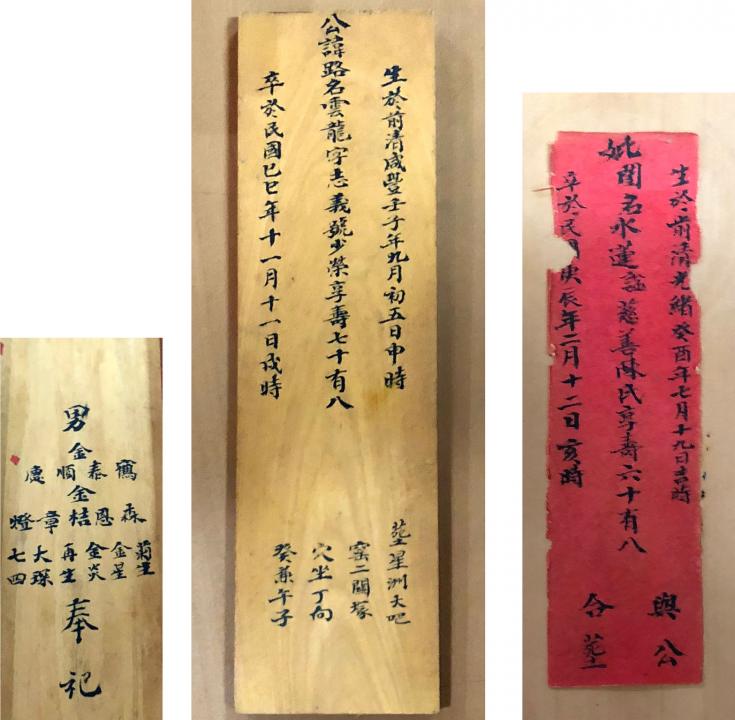 男
金
鶴泰順慶
金
森恩桔章燈
菊生
金星
金炎
再生
大琛
七四
奉祀
生於前清咸豐壬子年九月初五日申時
公諱路名雲龍字志義號少榮享壽七十有八
卒於民國己巳年十一月十一日戌時
塟星洲大吧
窑二閩塚
穴坐丁向
癸兼午子
生於前清光緒癸酉年七月十九日吉時
妣閨名水蓮諡慈善陳氏享壽六十有八
卒於民國庚辰年二月十二日亥時
與公
合塟